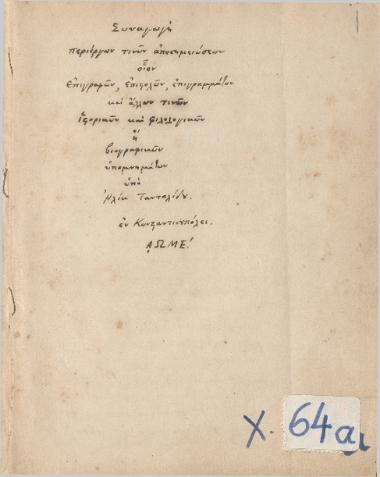 Συναγωγὴ
περιέργων τινῶν ἀποσημειώσεων
οἷον
Ἐπιγραφῶν, ἐπιστολῶν, ἐπιγραμμάτων
καὶ ἄλλων τινῶν
ἱστορικῶν καὶ φιλολογικῶν
ἢ
βιογραφικῶν
ὑπομνημάτων
ὑπὸ
Ἠλία Τανταλίδου.
ἐν Κωνσταντινουπόλει.
͵ΑΩΜΕʹ.
X. 64a